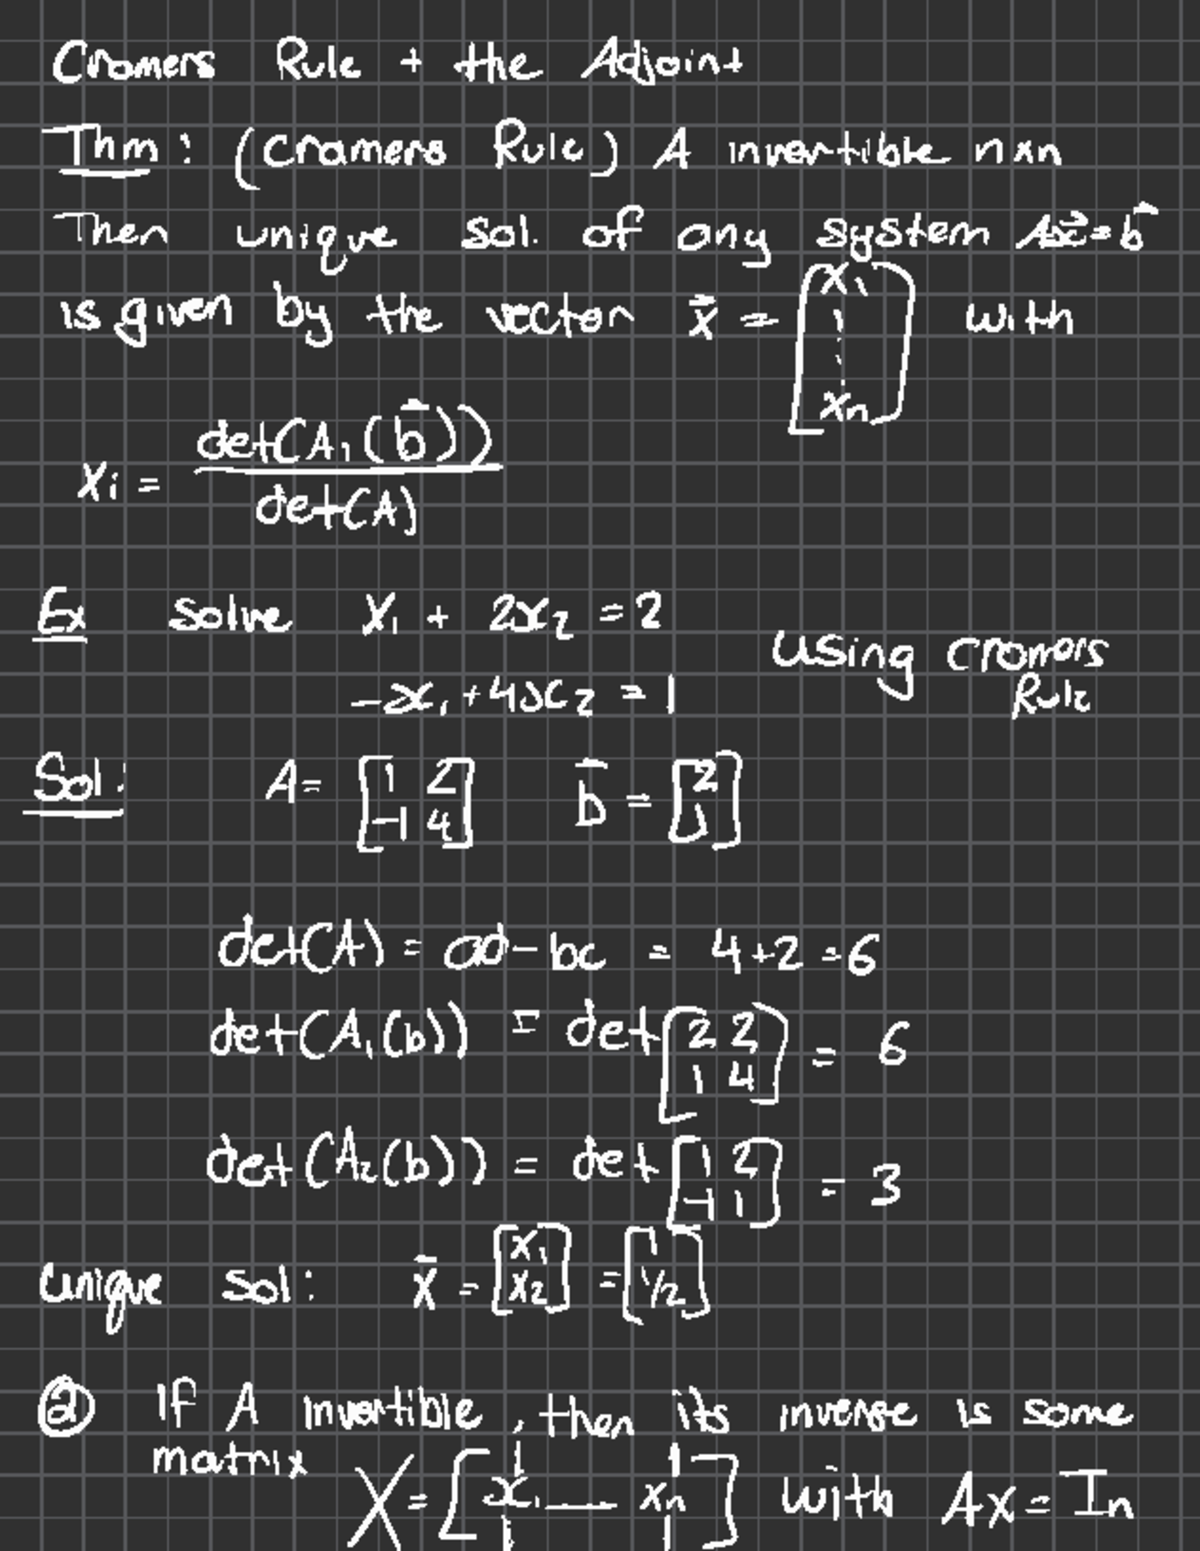 Cramers Rule + the Adjoint
Thm: (Cramers Rule) A invertible n×n
Then unique sol. of any system Ax⃗=b⃗
is given by the vector x⃗ = [x₁ ⋮ xₙ] with
xᵢ = det(A₁(b⃗)) / det(A)
Ex solve x₁ + 2x₂ = 2
-x₁ + 4x₂ = 1
using Cramers
Rule
Sol: A = [1 2; -1 4] b⃗ = [2; 1]
det(A) = ad-bc = 4+2 = 6
det(A₁(b)) = det[2 2; 1 4] = 6
det(A₂(b)) = det[1 2; -1 1] = 3
unique sol: x⃗ = [x₁; x₂] = [1; 1/2]
② If A invertible, then its inverse is some
matrix X = [x₁ — xₙ] with Ax = Iₙ